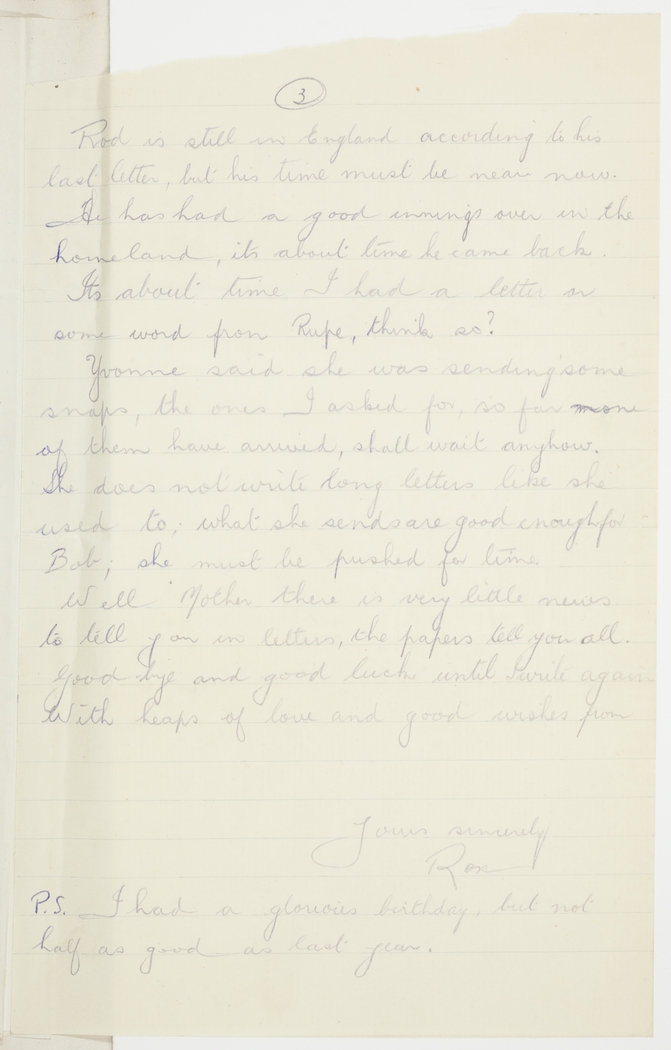 3
Rod is still in England according to his
last letter, but his time must be near now.
He has had a good innings over in the
homeland, its about time he came back.
Its about time I had a letter or
some word from Rupe, think so?
Yvonne said she was sending some
snaps, the ones I asked for, so far none
of them have arrived, shall wait anyhow.
She does not write long letters like she
used to; what she sends are good enough for
Bob; she must be pushed for time.
Well Mother there is very little news
to tell you in letters, the papers tell you all.
Good-bye and good luck until I write again
With heaps of love and good wishes from
Yours sincerely
Rox
P.S. I had a glorious birthday, but not
half as good as last year.